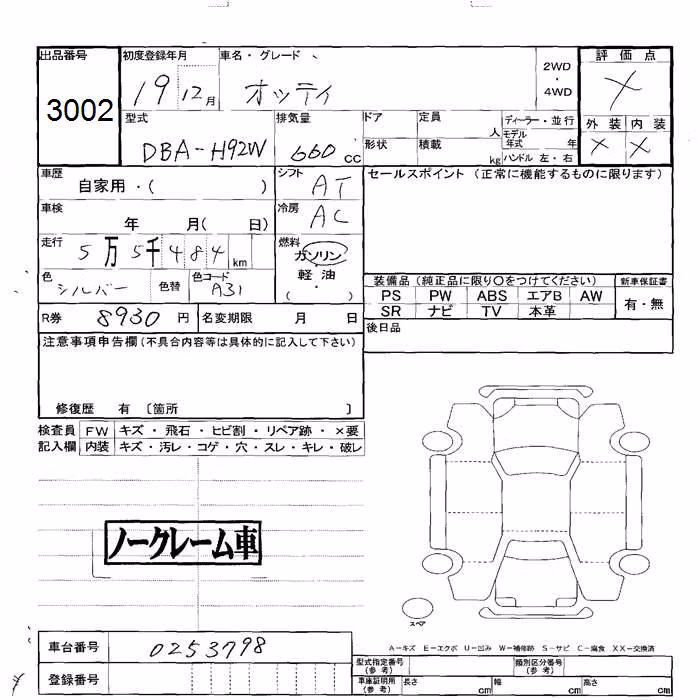 出品番号 初度登録年月 車名・グレード 評価点
3002 19 12月 オッティ 2WD・4WD ×
型式 排気量 ドア 定員 人 ディーラー・並行 外装 内装
DBA-H92W 660 cc 形状 積載 kg モデル年式 年 × ×
ハンドル 左・右
車歴 自家用・( ) シフト AT セールスポイント (正常に機能するものに限ります)
車検 年 月( 日) 冷房 AC
走行 5万5千484 km 燃料 ガソリン・軽油・( )
色 シルバー 色替 色コード A31 装備品(純正品に限り〇をつけてください) 新車保証書
PS PW ABS エアB AW 有・無
SR ナビ TV 本革
R券 8930 円 名変期限 月 日 後日品
注意事項申告欄(不具合内容等は具体的に記入して下さい)
修復歴 有 〔箇所 〕
検査員 FW キズ・飛石・ヒビ割・リペア跡・×要
記入欄 内装 キズ・汚レ・コゲ・穴・スレ・キレ・破レ
ノークレーム車
スペア
A-キズ E-エクボ U-凹み W-補修跡 S-サビ C-腐食 XX-交換済
車台番号 0253798 型式指定番号(参考) 類別区分番号(参考)
登録番号 車庫証明用(参考) 長さ cm 幅 cm 高さ cm